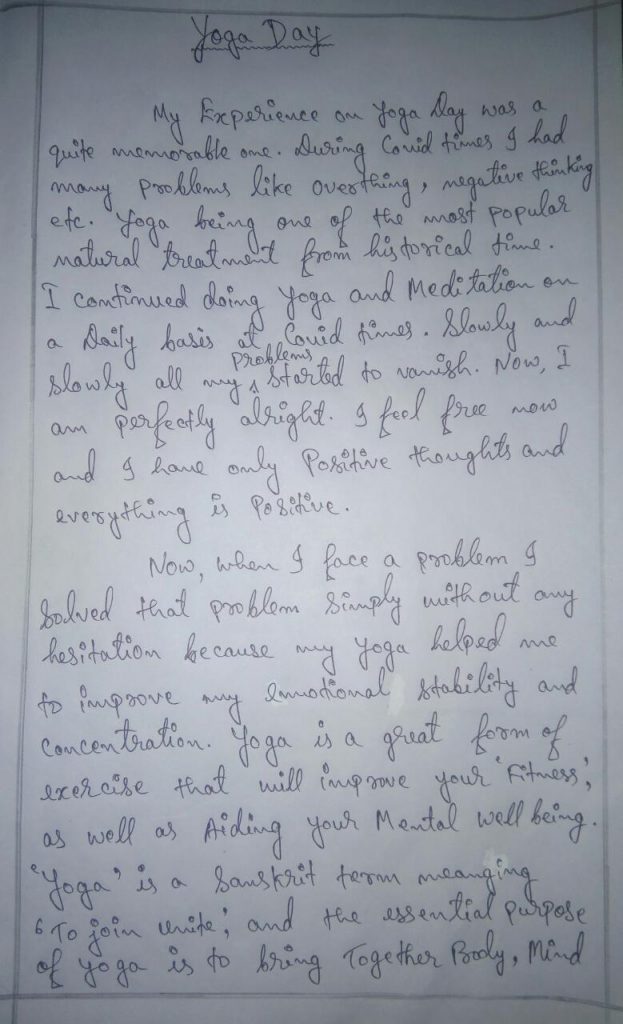 Yoga Day
My Experience on Yoga Day was a
quite memorable one. During Covid times I had
many problems like overthing, negative thinking
etc. Yoga being one of the most popular
natural treatment from historical time.
I continued doing Yoga and Meditation on
a Daily basis at Covid times. Slowly and
slowly all my problems started to vanish. Now, I
am perfectly alright. I feel free now
and I have only Positive thoughts and
everything is Positive.
Now, when I face a problem I
Solved that problem simply without any
hesitation because my Yoga helped me
to improve my emotional stability and
Concentration. Yoga is a great form of
exercise that will improve your 'Fitness',
as well as Aiding your Mental well being.
'Yoga' is a Sanskrit term meanging
'To join unite', and the essential purpose
of yoga is to bring Together Body, Mind